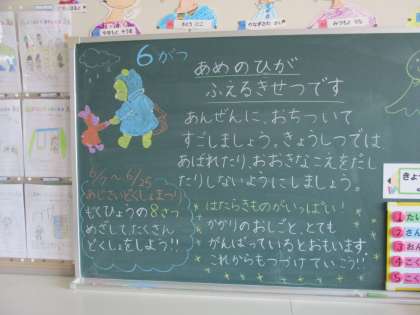 6がつ
あめのひが
ふえるきせつです
あんぜんに、おちついて
すごしましょう。きょうしつでは
あばれたり、おおきなこえをだし
たりしないようにしましょう。
6/7～6/25
あじさいどくしょまつり
もくひょうの8さつ
めざして、たくさん
どくしょをしよう!!
はたらきものがいっぱい!
かかりのおしごと、とても
がんばっているとおもいます
これからもつづけていこう!!
きょ
1 たい
2 さん
3 おん
4 こく
5 こく